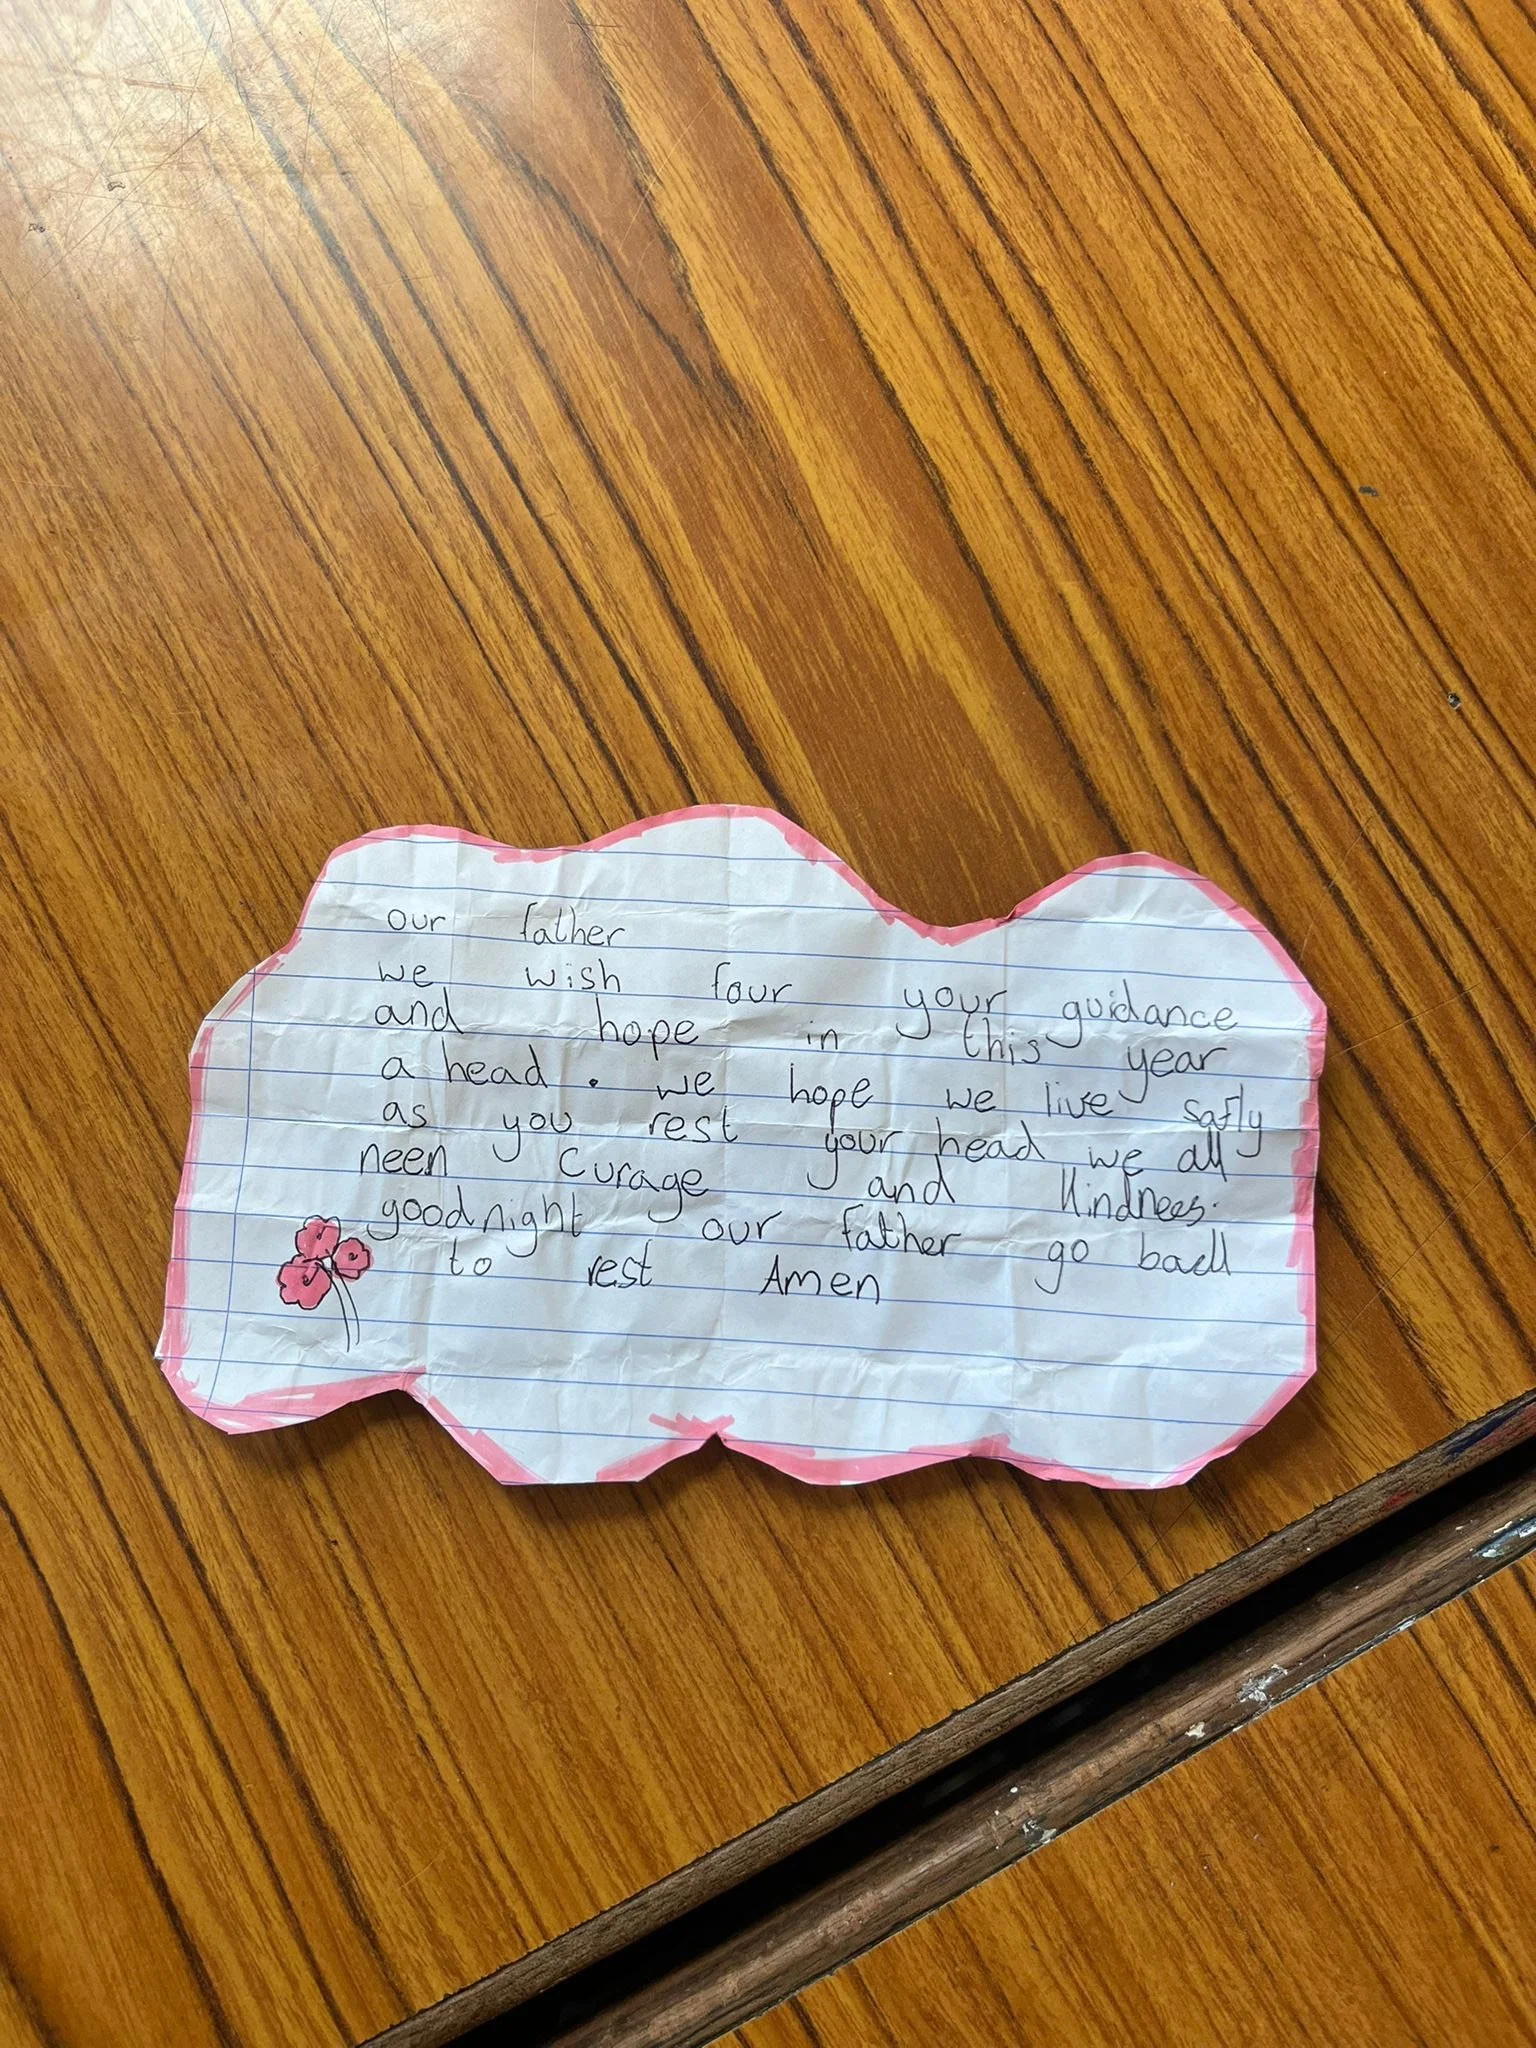 our father
we wish four your guidance
and hope in this year
a head. we hope we live safly
as you rest your head we all
neen curage and kindnees.
goodnight our father go back
to rest Amen